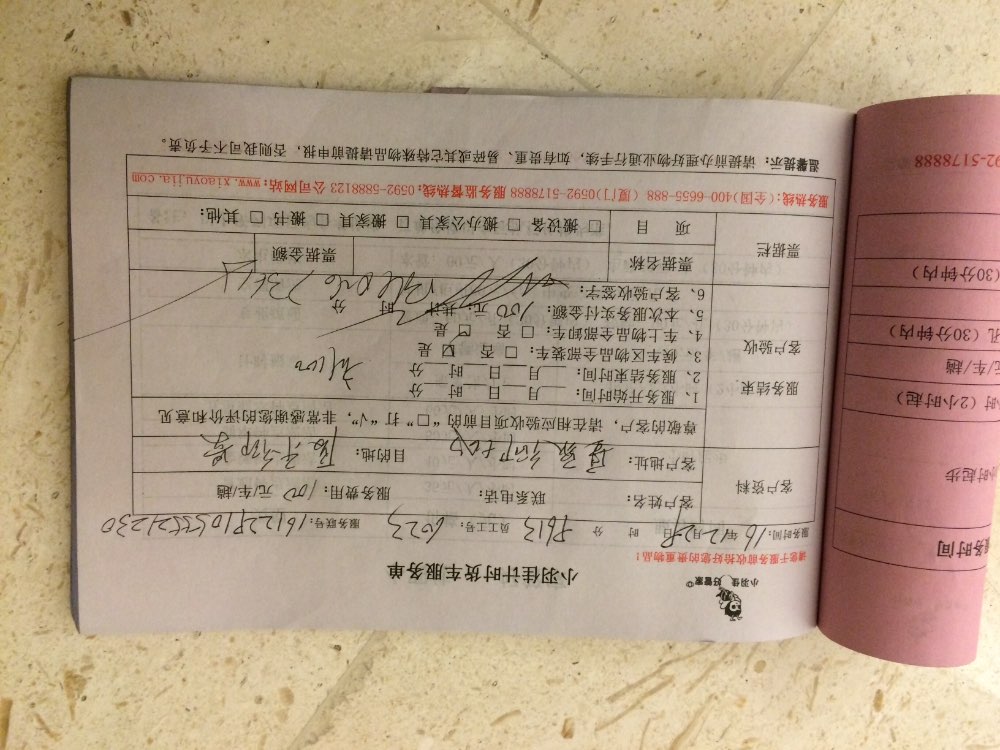 小羽佳 好管家
小羽佳计时货车服务单
请您于服务前收拾好您的贵重物品！
服务时间：16年12月29日 时 分 P613 员工号：6023 服务联号：1612291055521230
客户资料
客户姓名： 联系电话： 服务费用：100 元/车/趟
客户地址： 目的地：
服务结束
客户验收
尊敬的客户，请在相应验收项目前的“□”打“√”，非常感谢您的评价和意见
1、服务开始时间： 月 日 时 分
2、服务结束时间： 月 日 时 分
3、候车区物品全部装车： □ 否 ☑ 是
4、车上物品全部卸车： □ 否 ☑ 是
5、本次服务实付金额：100元 共计 时 分
6、客户验收签字：
票据栏
票据名称 票据金额
项 目 □ 搬设备 □ 搬办公家具 □ 搬家具 □ 搬书 □ 其他：
服务热线：(全国)400-6655-888 (厦门)0592-5178888 服务监督热线：0592-5888123 公司网站：www.xiaoyujia.com
温馨提示：请提前办理好物业通行手续，如有贵重、易碎或其它特殊物品请提前申报，否则我司不予负责。
服务时间
时起步
时 (2小时起)
元/车/趟
孔 (30分钟内)
(30分钟内)
92-5178888